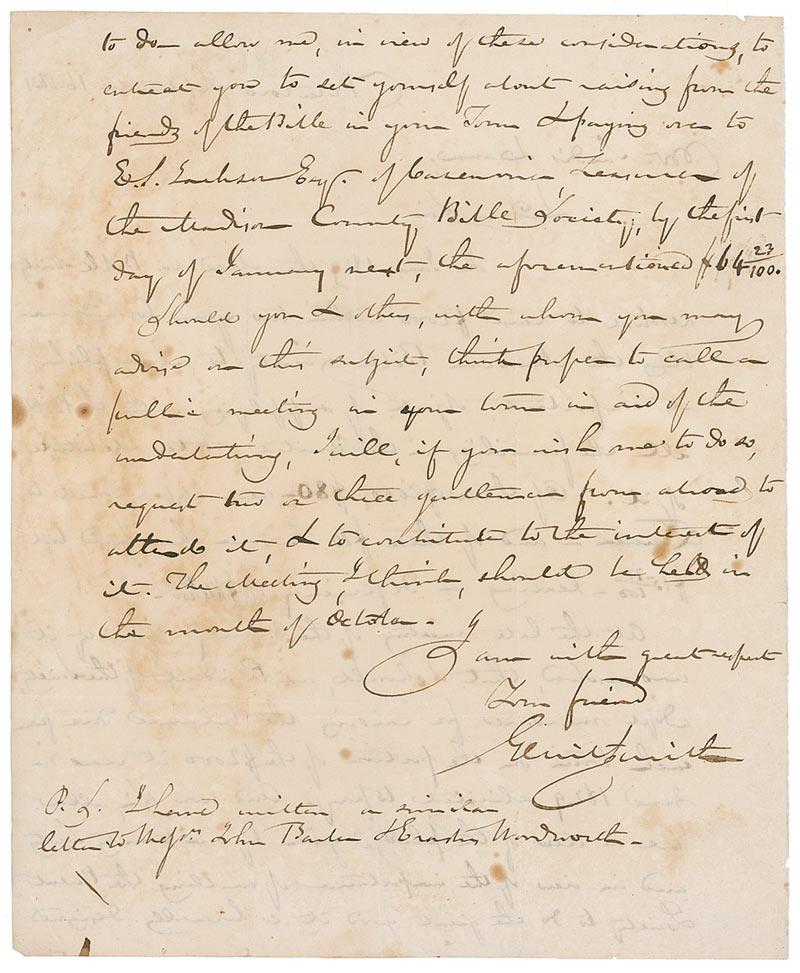 to do — allow me, in view of these considerations, to
entreat you to set yourself about raising from the
friends of the Bible in your Town & paying over to
E. S. Jackson Esqr. of Cazenovia, Treasurer of
the Madison County Bible Society, by the first
day of January next, the aforementioned $64 23/100.
Should you & others, with whom you may
advise on this subject, think proper to call a
public meeting in your town in aid of the
undertaking, I will, if you wish me to do so,
request two or three gentlemen from abroad to
attend it, & to contribute to the interest of
it. The Meeting, I think, should be held in
the month of October —
I am with great respect
Your friend
Gerrit Smith
P. S. I have written a similar
letter to Messrs. John Barber & Erastus Wordworth —